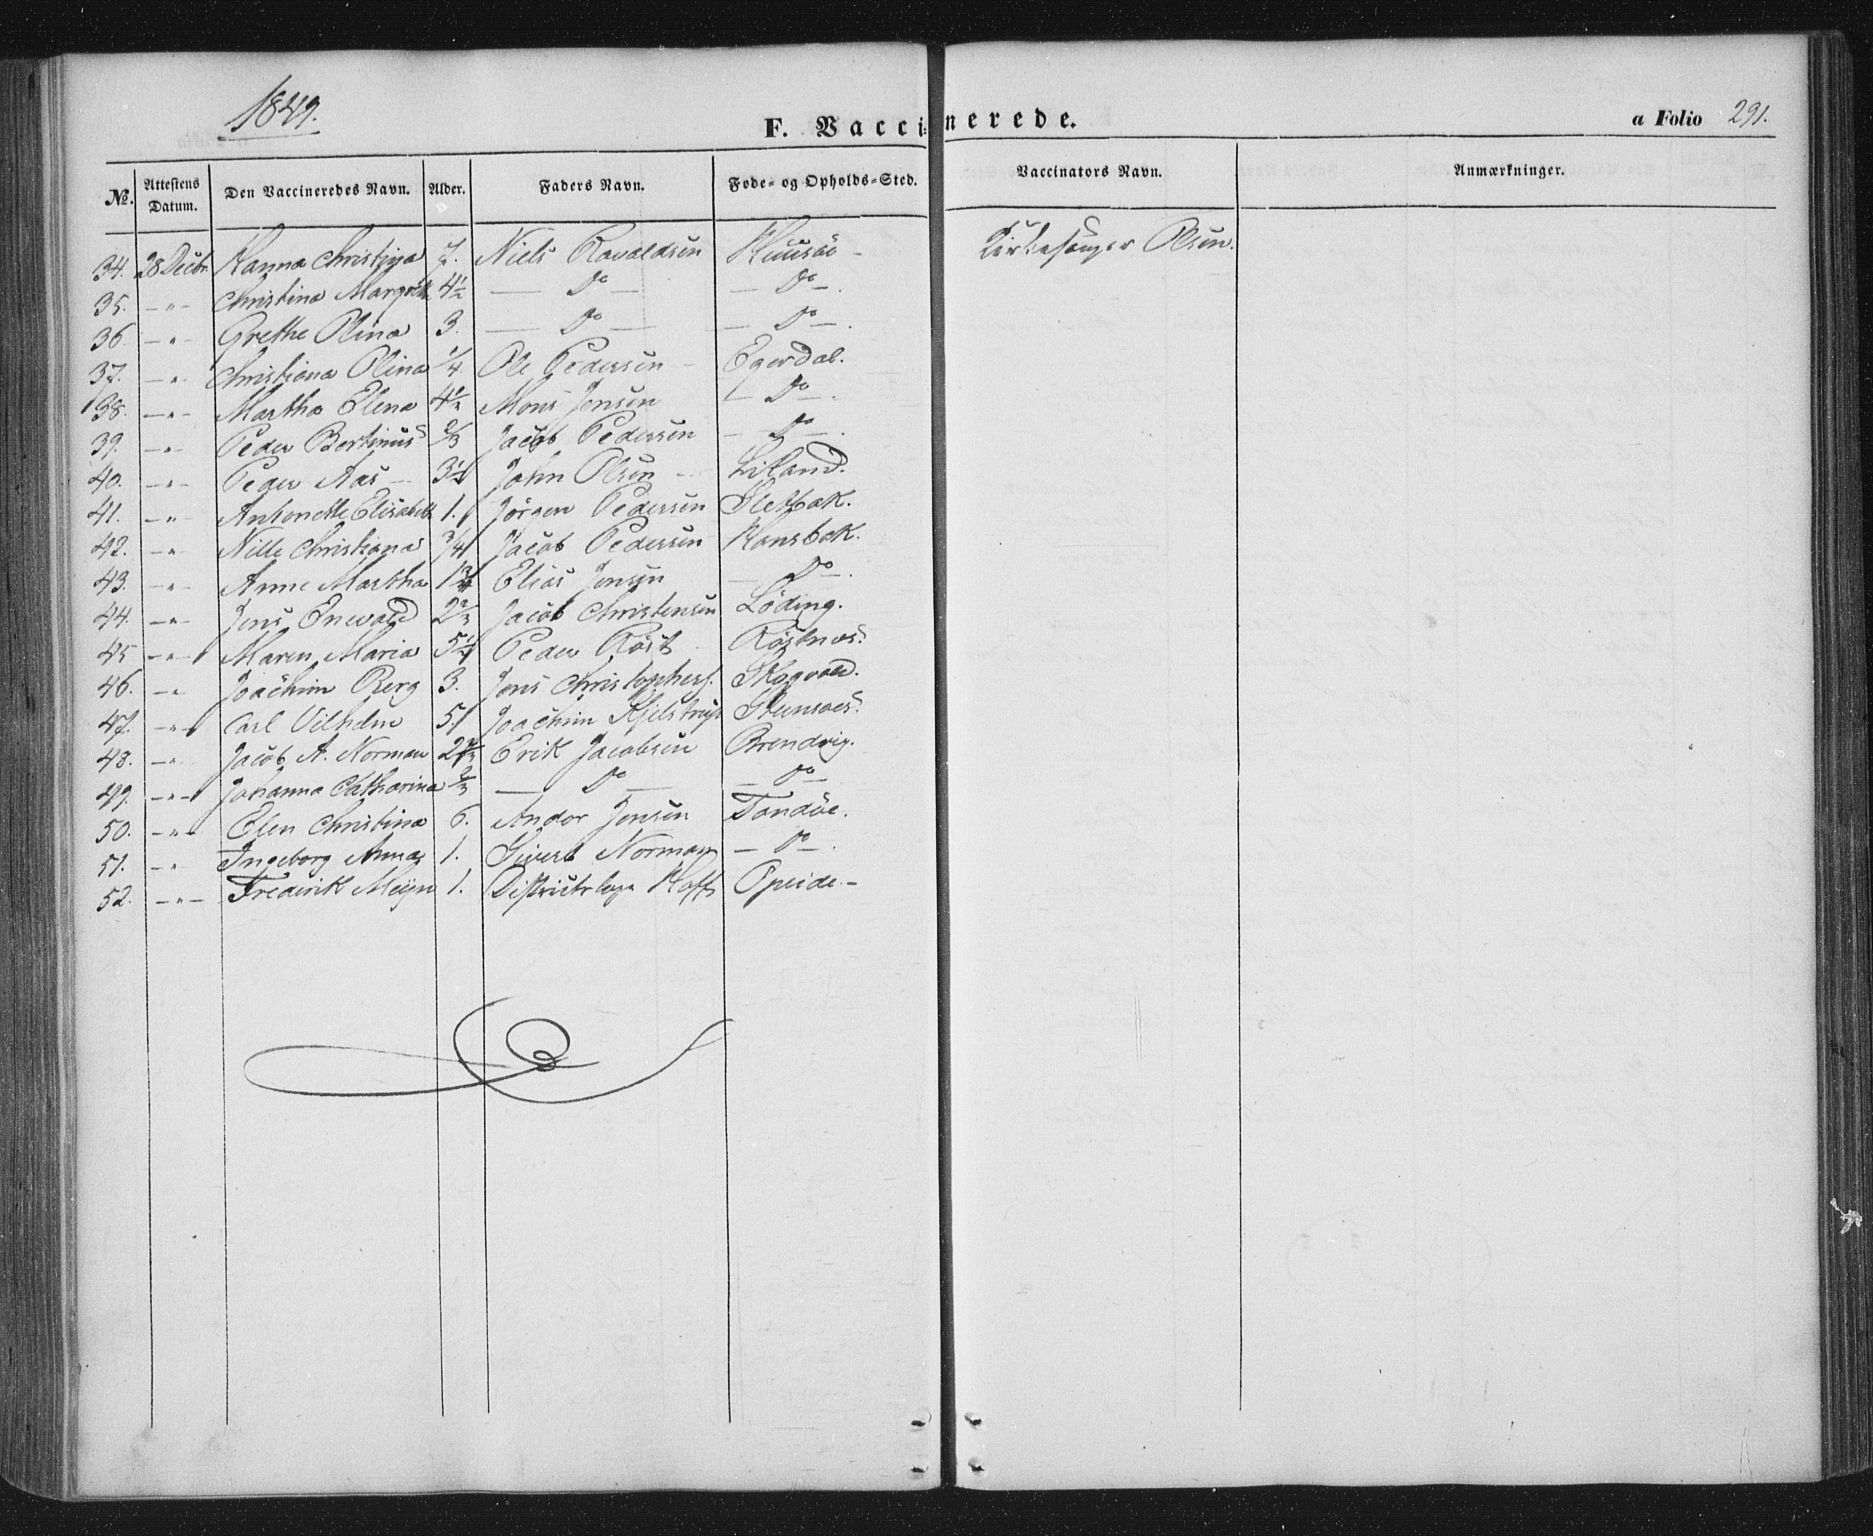 1849.
F. Vaccinerede.
a Folio 291.
No. Attestens Datum. Den Vaccineredes Navn. Alder. Faders Navn. Føde- og Opholds-Sted. Vaccinators Navn. Anmærkninger.
34. 28 Decbr. Hanna Christina 7. Niels Ravaldsen Kirkesanger Olsen.
35. — " — Christina Margreth 4½ — Do — — Do —.
36. — " Grethe Olina 3. — Do — — Do —.
37. — " Christiana Olina ¼ Ole Pedersen — Egerdal.
38. — " — Martha Elena 4½ Mons Jensen — Do —.
39. — " — Peder Bertinus 2/3 Jacob Pedersen — Do —.
40. — " — Peder Aas — 3½ John Olsen — Liland.
41. — " — Antonette Elisabeth 1. Jørgen Pedersen Sletbak.
42. — " Nille Christiana ¾ Jacob Pedersen Hansbak.
43. — " — Anne Martha 1¾ Elias Jensen — Do —.
44. — " — Jens Enevald 2 Jacob Christensen Løding.
45 — " — Maren Maria 5¼ Peder Røst Røstnes.
46. — " Joachim Berg 3. Jens Christophers. Skogvold.
47. — " — Carl Vilhelm 5. Joachim Kjelstrup
48. — " Jacob A. Norman 2 Erik Jacobsen Brendvig.
49. — " — Johanna Catharina 2/3 — Do — — Do —
50. — " — Elen Christina 6. Andor Jensen Tandøe.
51. — " Ingeborg Anna 1. Sivert Norman — Do —.
52. — " — Frederik Meijer 1. Districtslæge Hoff Opeide. —